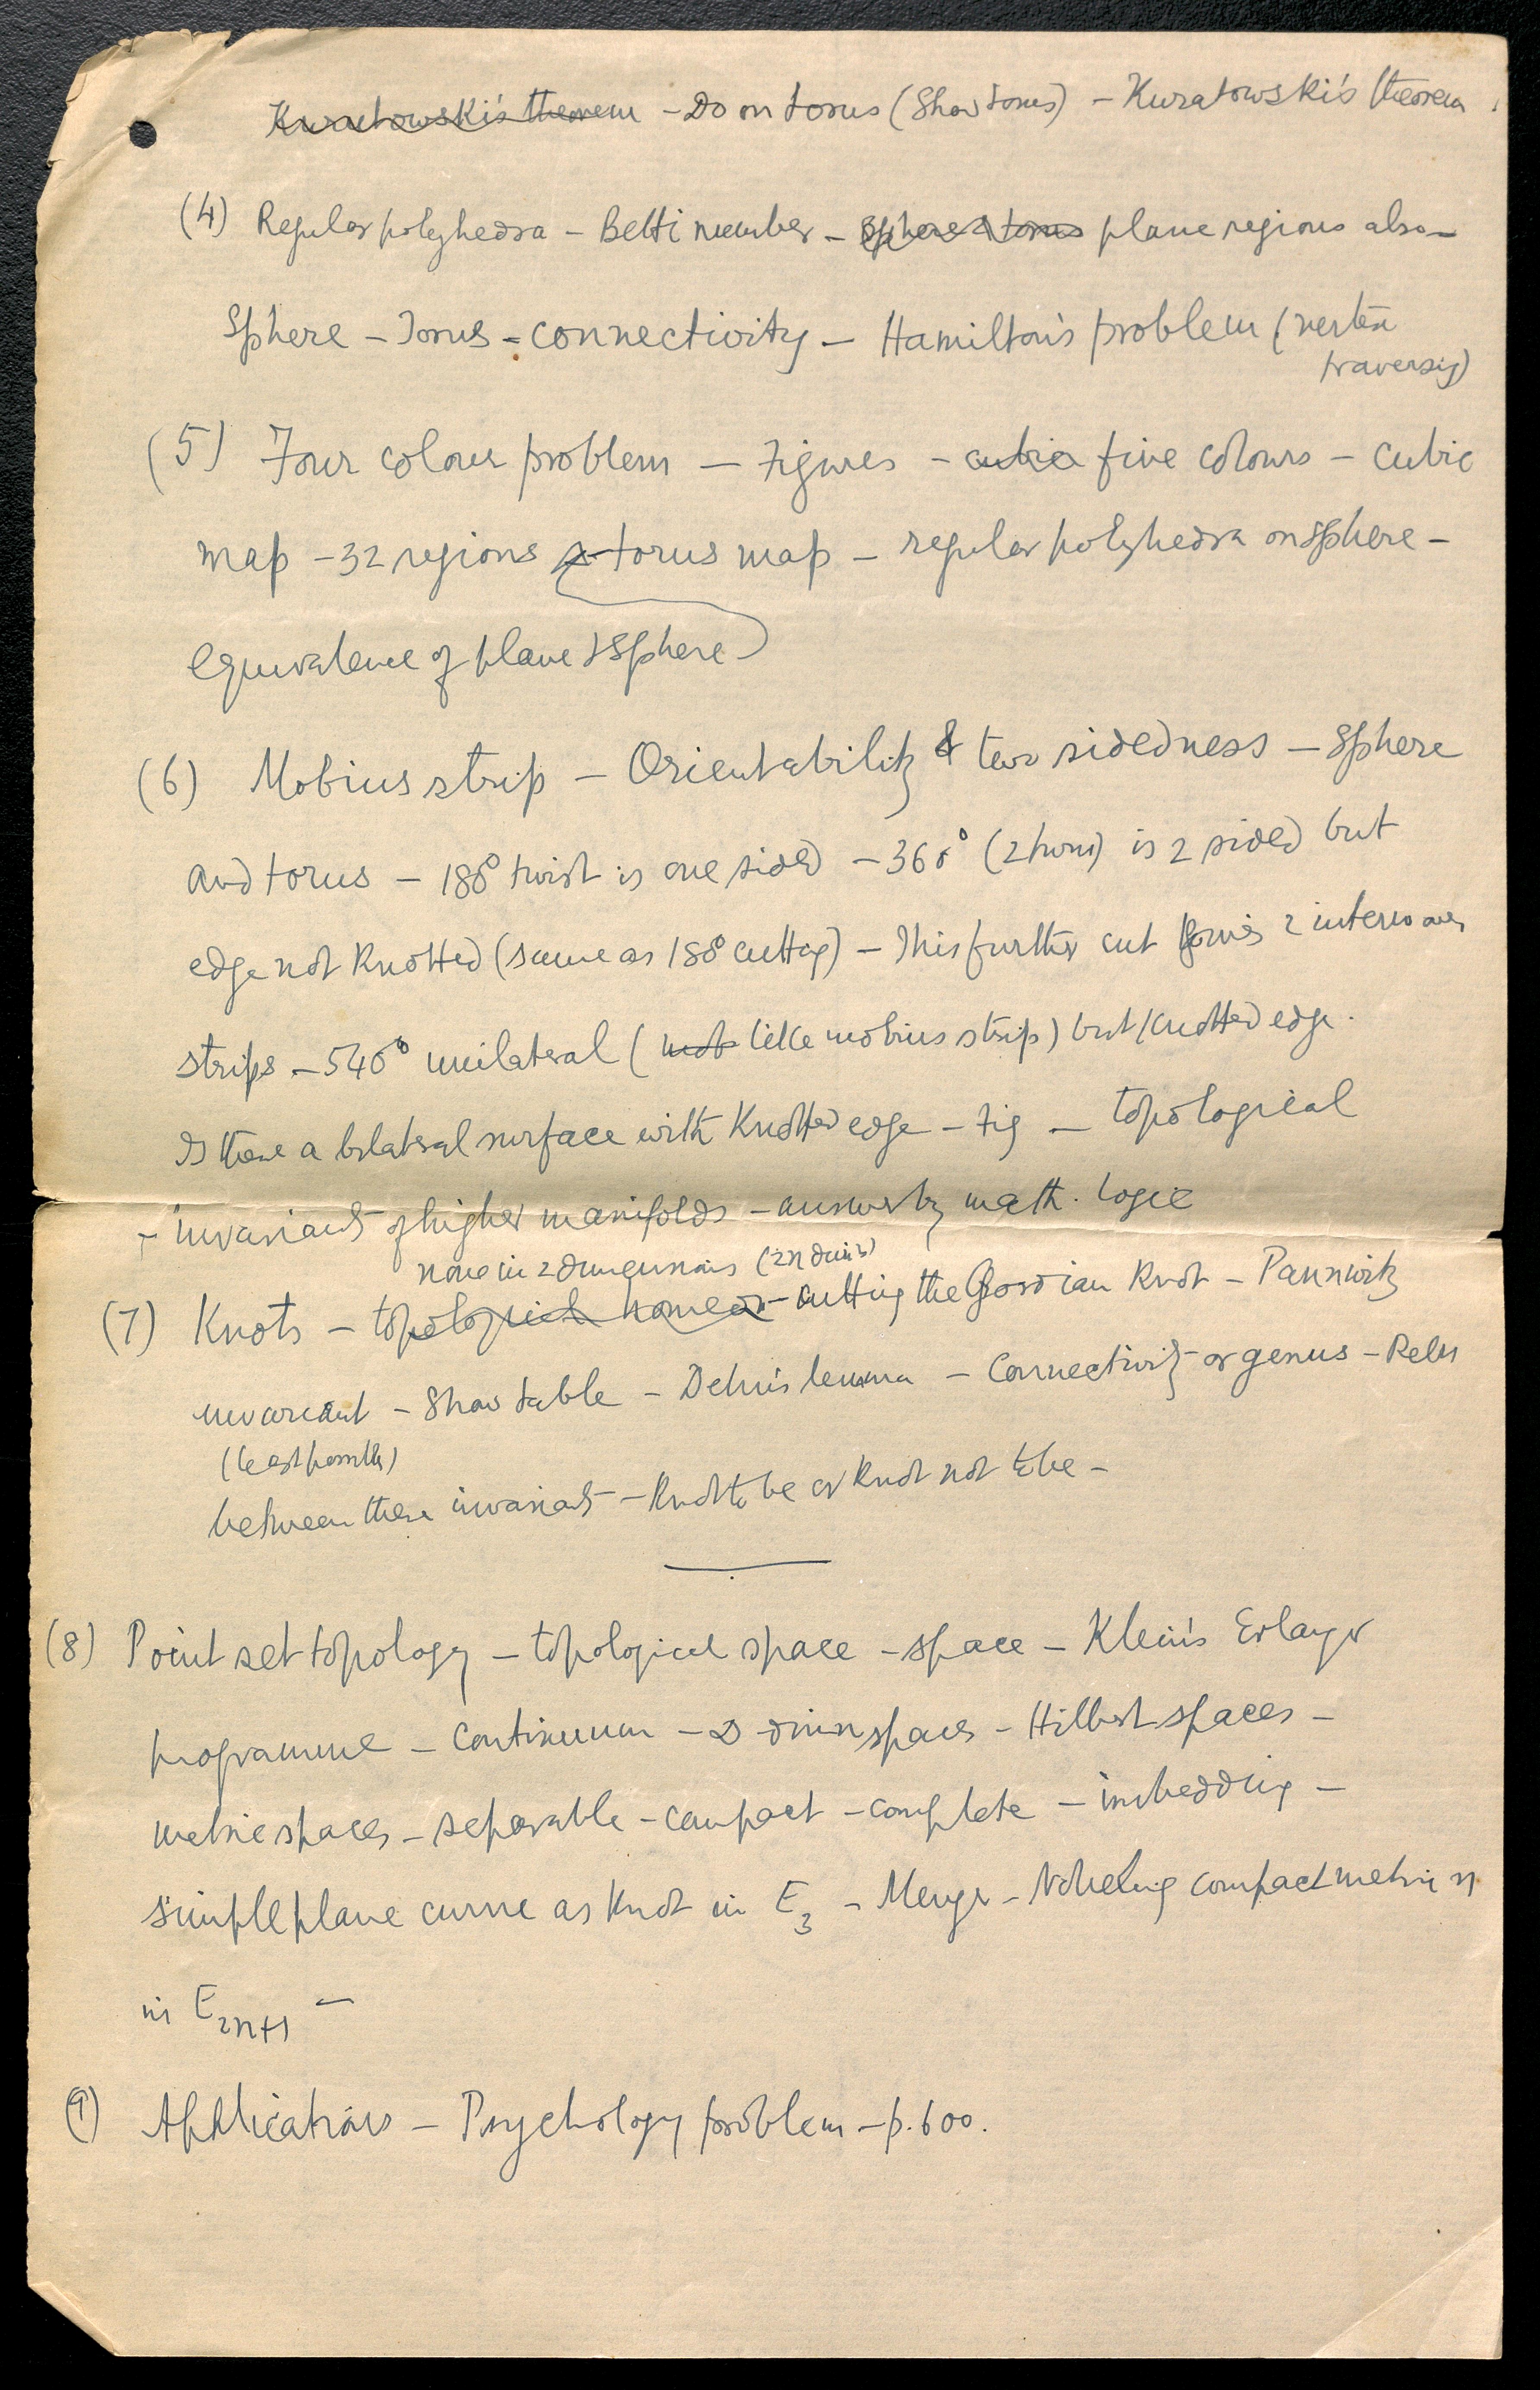 Kuratowski's theorem - Do on torus (Show torus) - Kuratowski's theorem.
(4) Regular polyhedra - Betti number - sphere & torus plane regions also -
Sphere - Torus - connectivity - Hamilton's problem (vertex
traversing)
(5) Four colour problem - Figures - cubic five colours - cubic
map - 32 regions - torus map - regular polyhedra on sphere -
equivalence of plane & sphere
(6) Mobius strip - Orientability & two sidedness - Sphere
and torus - 180° twist is one sided - 360° (2 turns) is 2 sided but
edge not Knotted (same as 180° cutting) - This further cut 2 interwoven
strips - 540° unilateral (not like mobius strip) but knotted edge.
Is there a bilateral surface with Knotted edge - Fig - topological
- invariants of higher manifolds - answer by math. logic
none in 2 dimensions (2n dim's)
(7) Knots - topological - cutting the Gordian Knot - Pannwitz
invariant - Show table - Dehn's lemma - Connectivity or genus - Reln
(least possible)
between these invariants - Knot to be or Knot not to be -
(8) Point set topology - topological space - space - Klein's Erlanger
programme - Continuum - D dimn spaces - Hilbert spaces -
metric spaces - separable - compact - complete - imbedding -
simple plane curve as knot in E3 - Menger - Nobeling compact metric n
in E2n+1 -
(9) Applications - Psychology problem - p. 600.